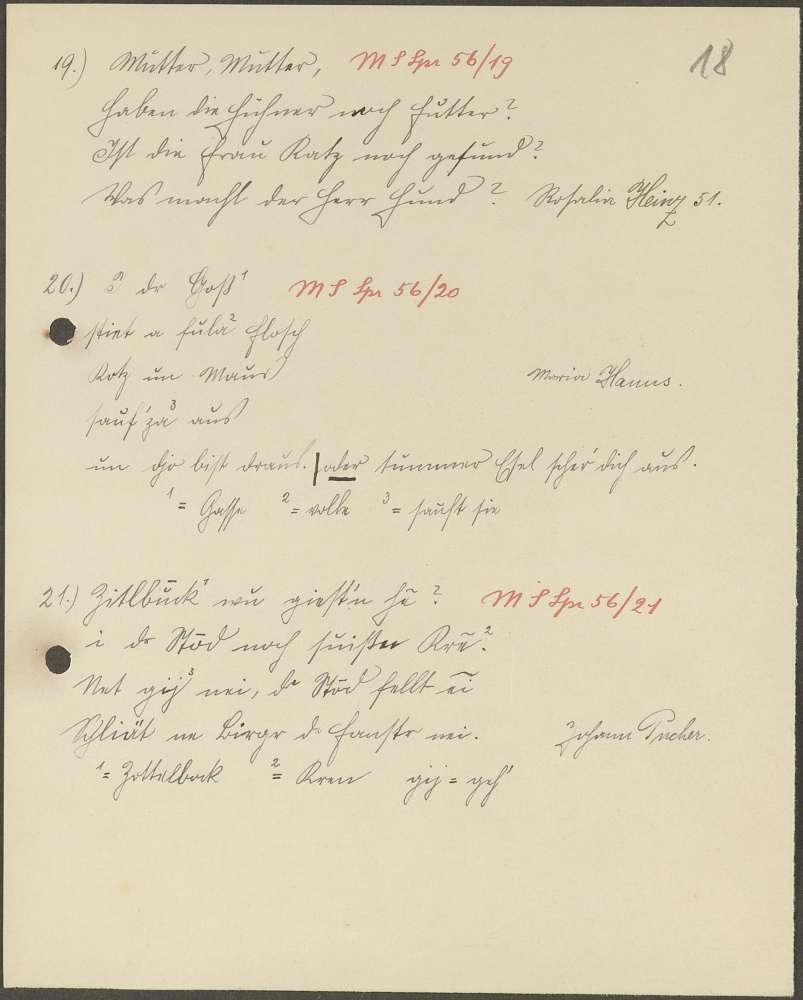 18
19.) Mutter, Mutter, M S Spr 56/19
Haben die Hühner noch Futter?
Ist die Frau Katz noch gesund?
Was macht der Herr Hund? Rosalia Heinz 51.
20.) I dr Goß¹ M S Spr 56/20
stiet a fula² Flosch
Kotz un Maus
sauf'za³ aus
un djo bist draus. | oder tummer Esel scher dich aus.
¹ = Gasse ² = volle ³ = sauft sie
Maria Hanus.
21.) Zitlbuck¹ wu giest'n hī? M S Spr 56/21
i dr Stōd noch suißer Krē.²
Net gij³ nei, de Stōd fellt ei
Schliät ne Birgr de Fanstr nei. Johann Pucher.
¹ = Zottelbock ² = Kren gij = geh'